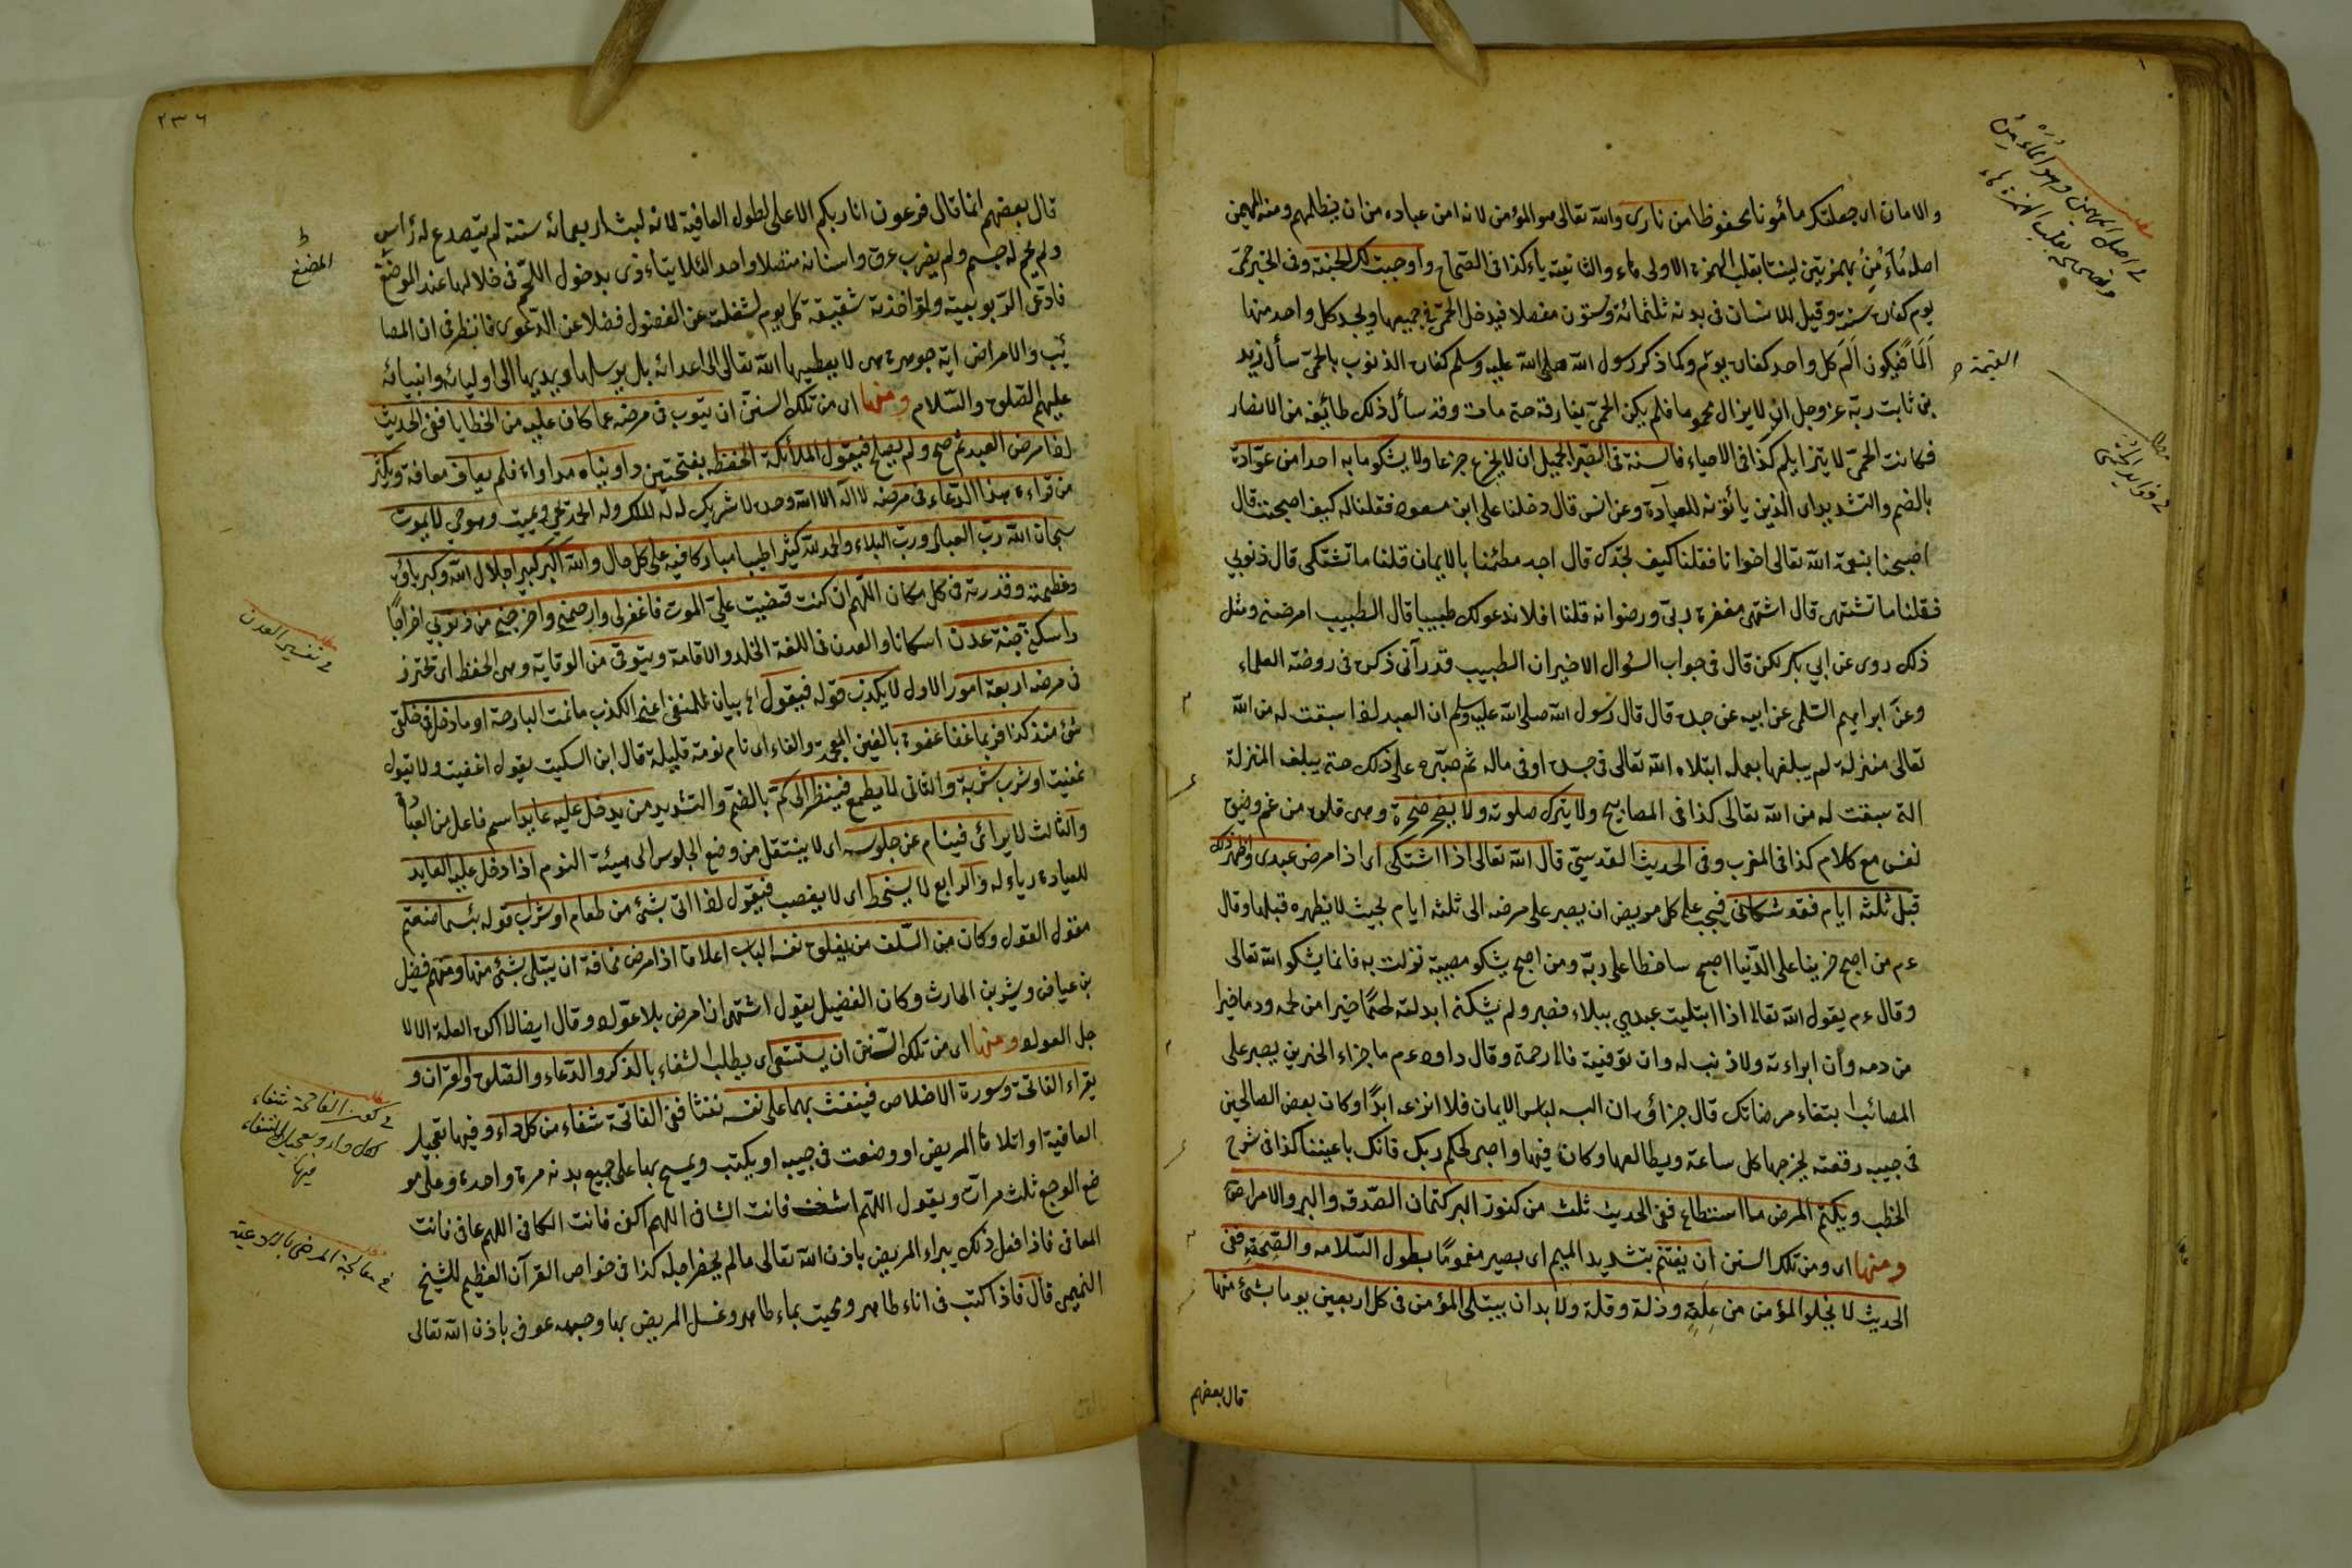 والامان ای جعلتكم مأمونا محفوظا من ناری والله تعالی هو المؤمن لانه امن عباده من ان یظلمهم ومنه المهیمن
اصله مُأَءْمِنٌ بهمزتین لینتا بقلب الهمزة الاولی هاء والثانیة یاء كذا فی الصحاح واوجبت لك الجنة وفی الخبر حمّی
یوم كفارة سنة وقیل للانسان فی بدنه ثلثمائة وستون مفصلا فیدخل الحمّی فی جمیعها ویجد كل واحد منها
اَلَمًا فیكون اَلَمَ كل واحد كفارة یوم ولما ذكر رسول الله صلی الله علیه وسلم كفارة الذنوب بالحمّی سأل زید
بن ثابت ربّه عز وجل ان لا یزال محموما فلم یكن الحمّی یفارقه حتی مات وقد سأل ذلك طائفة من الانصار
فكانت الحمّی لا یتزایلهم كذا فی الاحیاء فالسنة فی الصبر الجمیل ان لا یجزع جزعا ولا یشكو ما به احدا من عوّاده
بالضم والتشدید ای الذین یأتونه للعیادة وعن انس قال دخلنا علی ابن مسعود فقلنا له كیف اصبحت قال
اصبحنا بنعمة الله تعالی اخوانا فقلنا كیف تجدك قال اجد مطمئنا بالایمان قلنا ما تشتكی قال ذنوبی
فقلنا ما تشتهی قال اشتهی مغفرة ربی ورضوانه قلنا افلا ندعو لك طبیبا قال الطبیب امرضنی ومثل
ذلك روی عن ابی بكر لكن قال فی جواب السؤال الاخیر ان الطبیب قد رآنی ذكره فی روضة العلماء
وعن ابراهیم السلمی عن ابیه عن جده قال قال رسول الله صلی الله علیه وسلم ان العبد اذا سبقت له من الله
تعالی منزلة لم یبلغها بعمله ابتلاه الله تعالی فی جسده او فی ماله ثم صبّره علی ذلك حتی یبلغ المنزلة
التی سبقت له من الله تعالی كذا فی المصابیح ولا یترك صلوته ولا یضجر ضجرة وهی قلق من غم وضیق
نفس مع كلام كذا فی المغرب وفی الحدیث القدسیّ قال الله تعالی اذا اشتكی ای اذا مرض عبدی واظهر ذلك
قبل ثلثة ایام فقد شكانی فیجب علی كل مریض ان یصبر علی مرضه الی ثلثة ایام بحیث لا یظهره قبلها وقال
ع م من اصبح حزینا علی الدنیا اصبح ساخطا علی ربّه ومن اصبح یشكو مصیبة نزلت به فانما یشكو الله تعالی
وقال ع م یقول الله تعالی اذا ابتلیت عبدی ببلاء فصبر ولم یشكنی ابدلته لحمًا خیرا من لحمه ودما خیرا
من دمه وان ابراءته ولا ذنب له وان توفیته فالی رحمتی وقال داود ع م ما جزاء الحزین یصبر علی
المصائب ابتغاء مرضاتك قال جزاؤه ان البسه لباس الایمان فلا انزعه ابدًا وكان بعض الصالحین
فی جیبه رقعة یخرجها كل ساعة ویطالعها وكان فیها واصبر لحكم ربك فانك باعیننا كذا فی شرح
الخطب ویكتم المرض ما استطاع ففی الحدیث ثلث من كنوز البر كتمان الصدقة والبر والامراض
ومنها ای ومن تلك السنن ان یغتم بتشدید المیم ای یصیر مغمومًا بطول السلامة والصحة ففی
الحدیث لا یخلو المؤمن من علة وذلة وقلة ولا بد ان یبتلی المؤمن فی كل اربعین یوما بشئ منها
قال بعضهم
٢٣٦
قال بعضهم انما قال فرعون انا ربكم الاعلی لطول العافیة لانه لبث اربعمائة سنة لم یتصدع له رأس
ولم یحم له جسم ولم یضرب عرق واسنانه متصلا واحد لئلا یتاءذی بدخول اللحم فی خلالها عند الموضغ
المضغ
فادّعی الربوبیة ولو اخذته شقیقة كل یوم لشغلته عن الفضول فضلا عن الدعوی فانظر فی ان المصا
ئب والامراض ایة جوهرة هی لا یعطیها الله تعالی الی اعدائه بل یرسلها ویهدیها الی اولیائه وانبیائه
علیهم الصلوة والسلام ومنها ای من تلك السنن ان یتوب فی مرضه عما كان علیه من الخطایا ففی الحدیث
اذا مرض العبد ثم صح ولم یصلح فیقول الملائكة الحفظة بفتحتین داویناه مداواة فلم یعاف معافة ویكثر
من قراءة هذا الدعاء فی مرضه لا اله الا الله وحده لا شریك له له الملك وله الحمد یحیی ویمیت وهو حی لا یموت
سبحان الله رب العباد ورب البلاد والحمد لله كثیرا طیبا مباركا فیه علی كل حال والله اكبر كبیرا جلال الله وكبریاؤه
وعظمته وقدرته فی كل مكان اللهم ان كنت قضیت علیّ الموت فاغفر لی وارحمنی واخرجنی من ذنوبی اخراجًا
واسكنی جنة عدن اسكانا والعدن فی اللغة الخلد والاقامة ویتوقی من الوقایة وهی الحفظ ای یحترز
فی تفسیر العدن
فی مرضه اربعة امور الاول لا یكذب قوله فیقول بیان للمنفی اعنی الكذب ما نمت البارحة او ما دخل فی حلقی
شئ منذ كذا فربما غفا غفوة بالغین المعجمة والفاء ای نام نومة قلیلة قال ابن السكیت یقول اغفیت ولا تقول
غفیت او شرب شربة والثانی لا یطمع فینظر الی كم بالضم والتشدید من یدخل علیه عایدا اسم فاعل من العیادة
والثالث لا یرائی فینام عن جلوسه ای لا ینتقل من وضع الجلوس الی هیئة النوم اذا دخل علیه العاید
للعیادة ریاء له والرابع لا یسخط ای لا یغضب فیقول اذا اتی بشئ من طعام او شراب قوله بئسما صنعتم
مقول القول وكان من السلف من یغلق نفسه الباب اعلاقا اذا مرض مخافة ان یبتلی بشئ منها ومنهم فضیل
بن عیاض وبشر بن الحارث وكان الفضیل یقول اشتهی ان امرض بلا عوّاد وقال ایضا لا اكره العلة الا لا
جل العواد ومنها ای من تلك السنن ان یستشفی ای یطلب الشفاء بالذكر والدعاء والصلوة والقرآن و
یقراء الفاتحة وسورة الاخلاص فینفث بهما علی نفسه نفثا ففی الفاتحة شفاء من كل داء وفیها تعجیل
العافیة او اتلاها المریض او وضعت فی جیبه او یكتب ویمسح بها علی جمیع بدنه مرة واحدة وعلی مو
ضع الوجع ثلث مرات ویقول اللهم اشف فانت الشافی اللهم اكف فانت الكافی اللهم عاف فانت
فی معالجة المرض بالادعیة
المعافی فاذا فعل ذلك یبراء المریض باذن الله تعالی ما لم یحضر اجله كذا فی خواص القرآن العظیم للشیخ
التمیمی قال فاذا كتب فی اناء طاهر ومحیت بماء طاهر وغسل المریض بها وجهه عوفی باذن الله تعالی